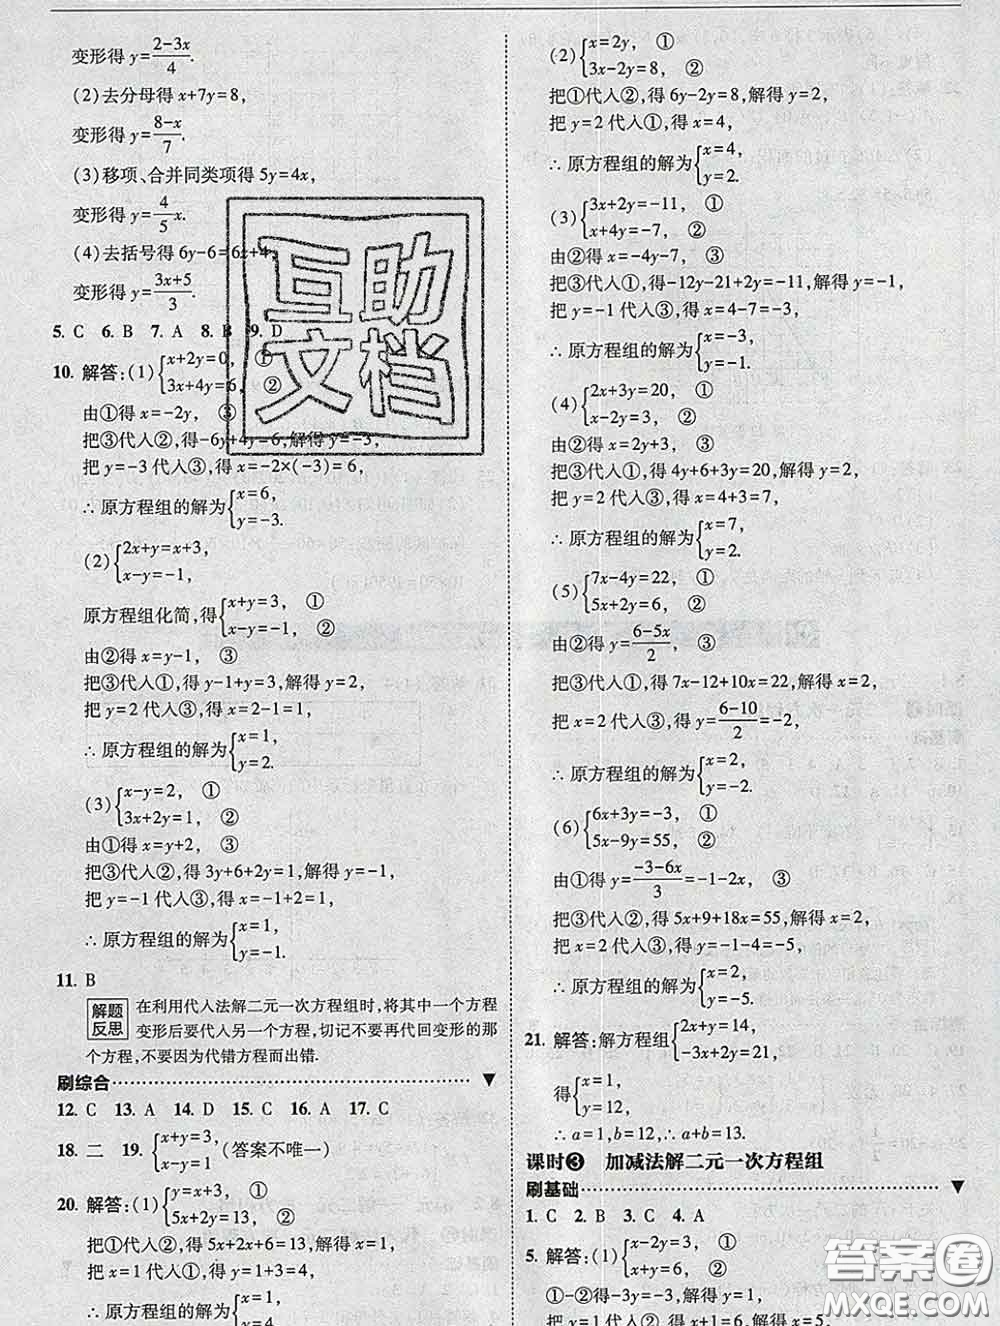 变形得 y=(2-3x)/4.
(2)去分母得 x+7y=8,
变形得 y=(8-x)/7.
(3)移项、合并同类项得 5y=4x,
变形得 y=4/5 x.
(4)去括号得 6y-6=6x+4
变形得 y=(3x+5)/3.
5. C 6. B 7. A 8. B 9. D
10. 解答:(1){x+2y=0, ①
3x+4y=6, ②
由①得 x=-2y, ③
把③代人②,得-6y+4y=6,解得 y=-3,
把 y=-3 代人③,得 x=-2×(-3)=6,
∴ 原方程组的解为{x=6,
y=-3.
(2){2x+y=x+3,
x-y=-1,
原方程组化简,得{x+y=3, ①
x-y=-1, ②
由②得 x=y-1, ③
把③代人①,得 y-1+y=3,解得 y=2,
把 y=2 代人③,得 x=2-1=1,
∴ 原方程组的解为{x=1,
y=2.
(3){x-y=2, ①
3x+2y=1, ②
由①得 x=y+2, ③
把③代人②,得 3y+6+2y=1,解得 y=-1,
把 y=-1 代人③,得 x=-1+2=1,
∴ 原方程组的解为{x=1,
y=-1.
11. B
解题反思
在利用代人法解二元一次方程组时,将其中一个方程
变形后要代人另一个方程,切记不要再代回变形的那
个方程,不要因为代错方程而出错.
刷综合
12. C 13. A 14. D 15. C 16. A 17. C
18. 二 19. {x+y=3,
x-y=-1 (答案不唯一)
20. 解答:(1){y=x+3, ①
5x+2y=13, ②
把①代人②,得 5x+2x+6=13,解得 x=1,
把 x=1 代人①,得 y=1+3=4,
∴ 原方程组的解为{x=1,
y=4.
(2){x=2y, ①
3x-2y=8, ②
把①代人②,得 6y-2y=8,解得 y=2,
把 y=2 代人①,得 x=4,
∴ 原方程组的解为{x=4,
y=2.
(3){3x+2y=-11, ①
x+4y=-7, ②
由②得 x=-4y-7, ③
把③代人①,得-12y-21+2y=-11,解得 y=-1,
把 y=-1 代人③,得 x=4-7=-3,
∴ 原方程组的解为{x=-3,
y=-1.
(4){2x+3y=20, ①
x-2y=3, ②
由②得 x=2y+3, ③
把③代人①,得 4y+6+3y=20,解得 y=2,
把 y=2 代人③,得 x=4+3=7,
∴ 原方程组的解为{x=7,
y=2.
(5){7x-4y=22, ①
5x+2y=6, ②
由②得 y=(6-5x)/2, ③
把③代人①,得 7x-12+10x=22,解得 x=2,
把 x=2 代人③,得 y=(6-10)/2=-2,
∴ 原方程组的解为{x=2,
y=-2.
(6){6x+3y=-3, ①
5x-9y=55, ②
由①得 y=(-3-6x)/3=-1-2x, ③
把③代人②,得 5x+9+18x=55,解得 x=2,
把 x=2 代人③,得 y=-1-4=-5,
∴ 原方程组的解为{x=2,
y=-5.
21. 解答:解方程组{2x+y=14,
-3x+2y=21,
得{x=1,
y=12,
∴ a=1,b=12,∴ a+b=13.
课时❸ 加减法解二元一次方程组
刷基础
1. C 2. B 3. C 4. A
5. 解答:(1){x-2y=3, ①
x+y=6, ②
①-②得-3y=-3,解得 y=1,
把 y=1 代人②,得 x+1=6,解得 x=5,
互助
文档
答案圈
MXQE.COM